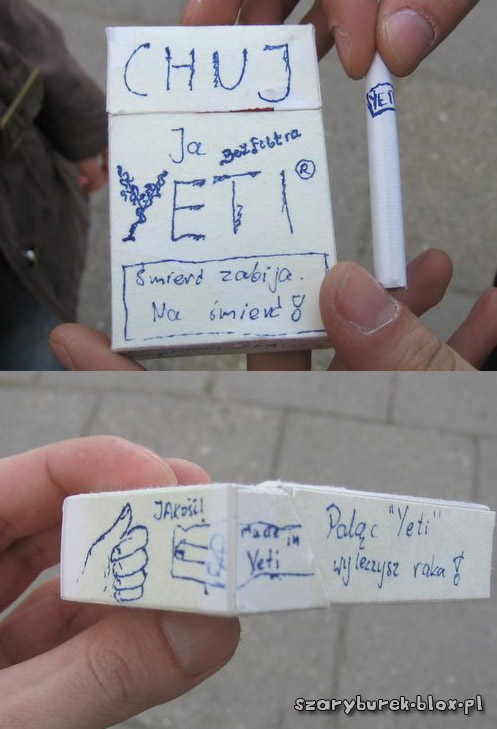 CHUJ
Ja bez filtra
YETI®
Śmierć zabija.
Na śmierć!
YETI
JAKOŚĆ!
Made in
Yeti
Paląc "Yeti"
wyleczysz raka!
szaryburek.blox.pl